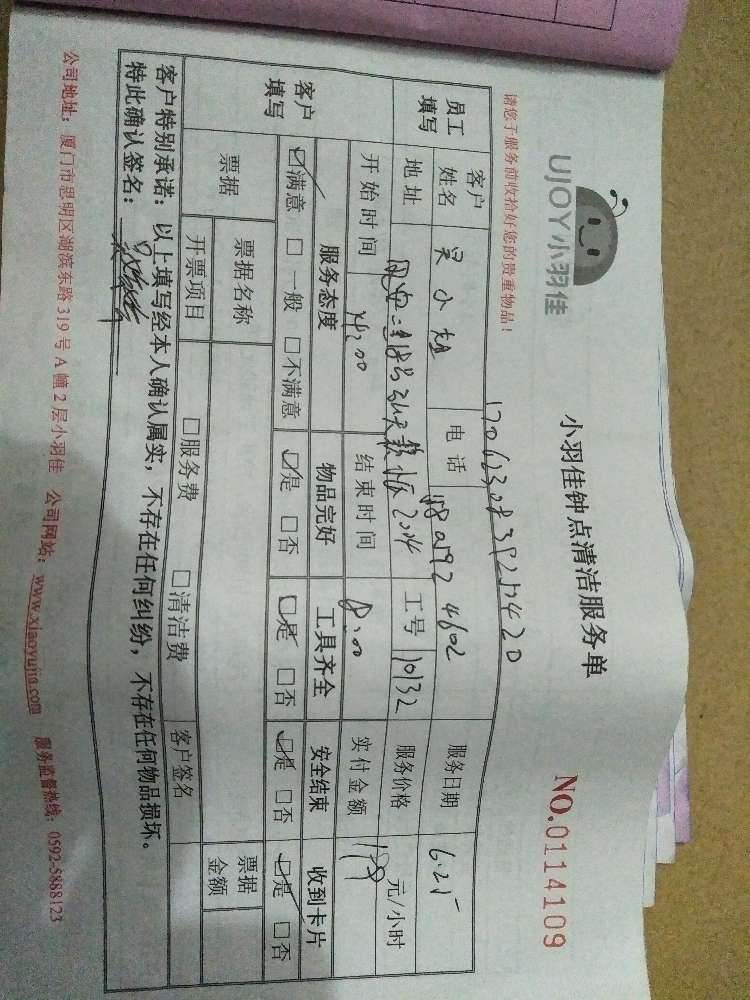 UJOY小羽佳
小羽佳钟点清洁服务单
NO.0114109
请您于服务前收拾好您的贵重物品！
员工填写 客户姓名 吴小姐 电话 服务日期 6.25
地址 工号 10132 服务价格 元/小时
开始时间 14:00 结束时间 18:00 实付金额 199
客户填写 服务态度 物品完好 工具齐全 安全结束 收到卡片
☑满意 □一般 □不满意 ☑是 □否 ☑是 □否 ☑是 □否 ☑是 □否
票据 票据名称 票据金额
开票项目 □服务费 □清洁费 客户签名
客户特别承诺：以上填写经本人确认属实，不存在任何纠纷，不存在任何物品损坏。
特此确认签名：
公司地址：厦门市思明区湖滨东路319号A幢2层小羽佳 公司网站：www.xiaoyujia.com 服务监督热线：0592-5888123